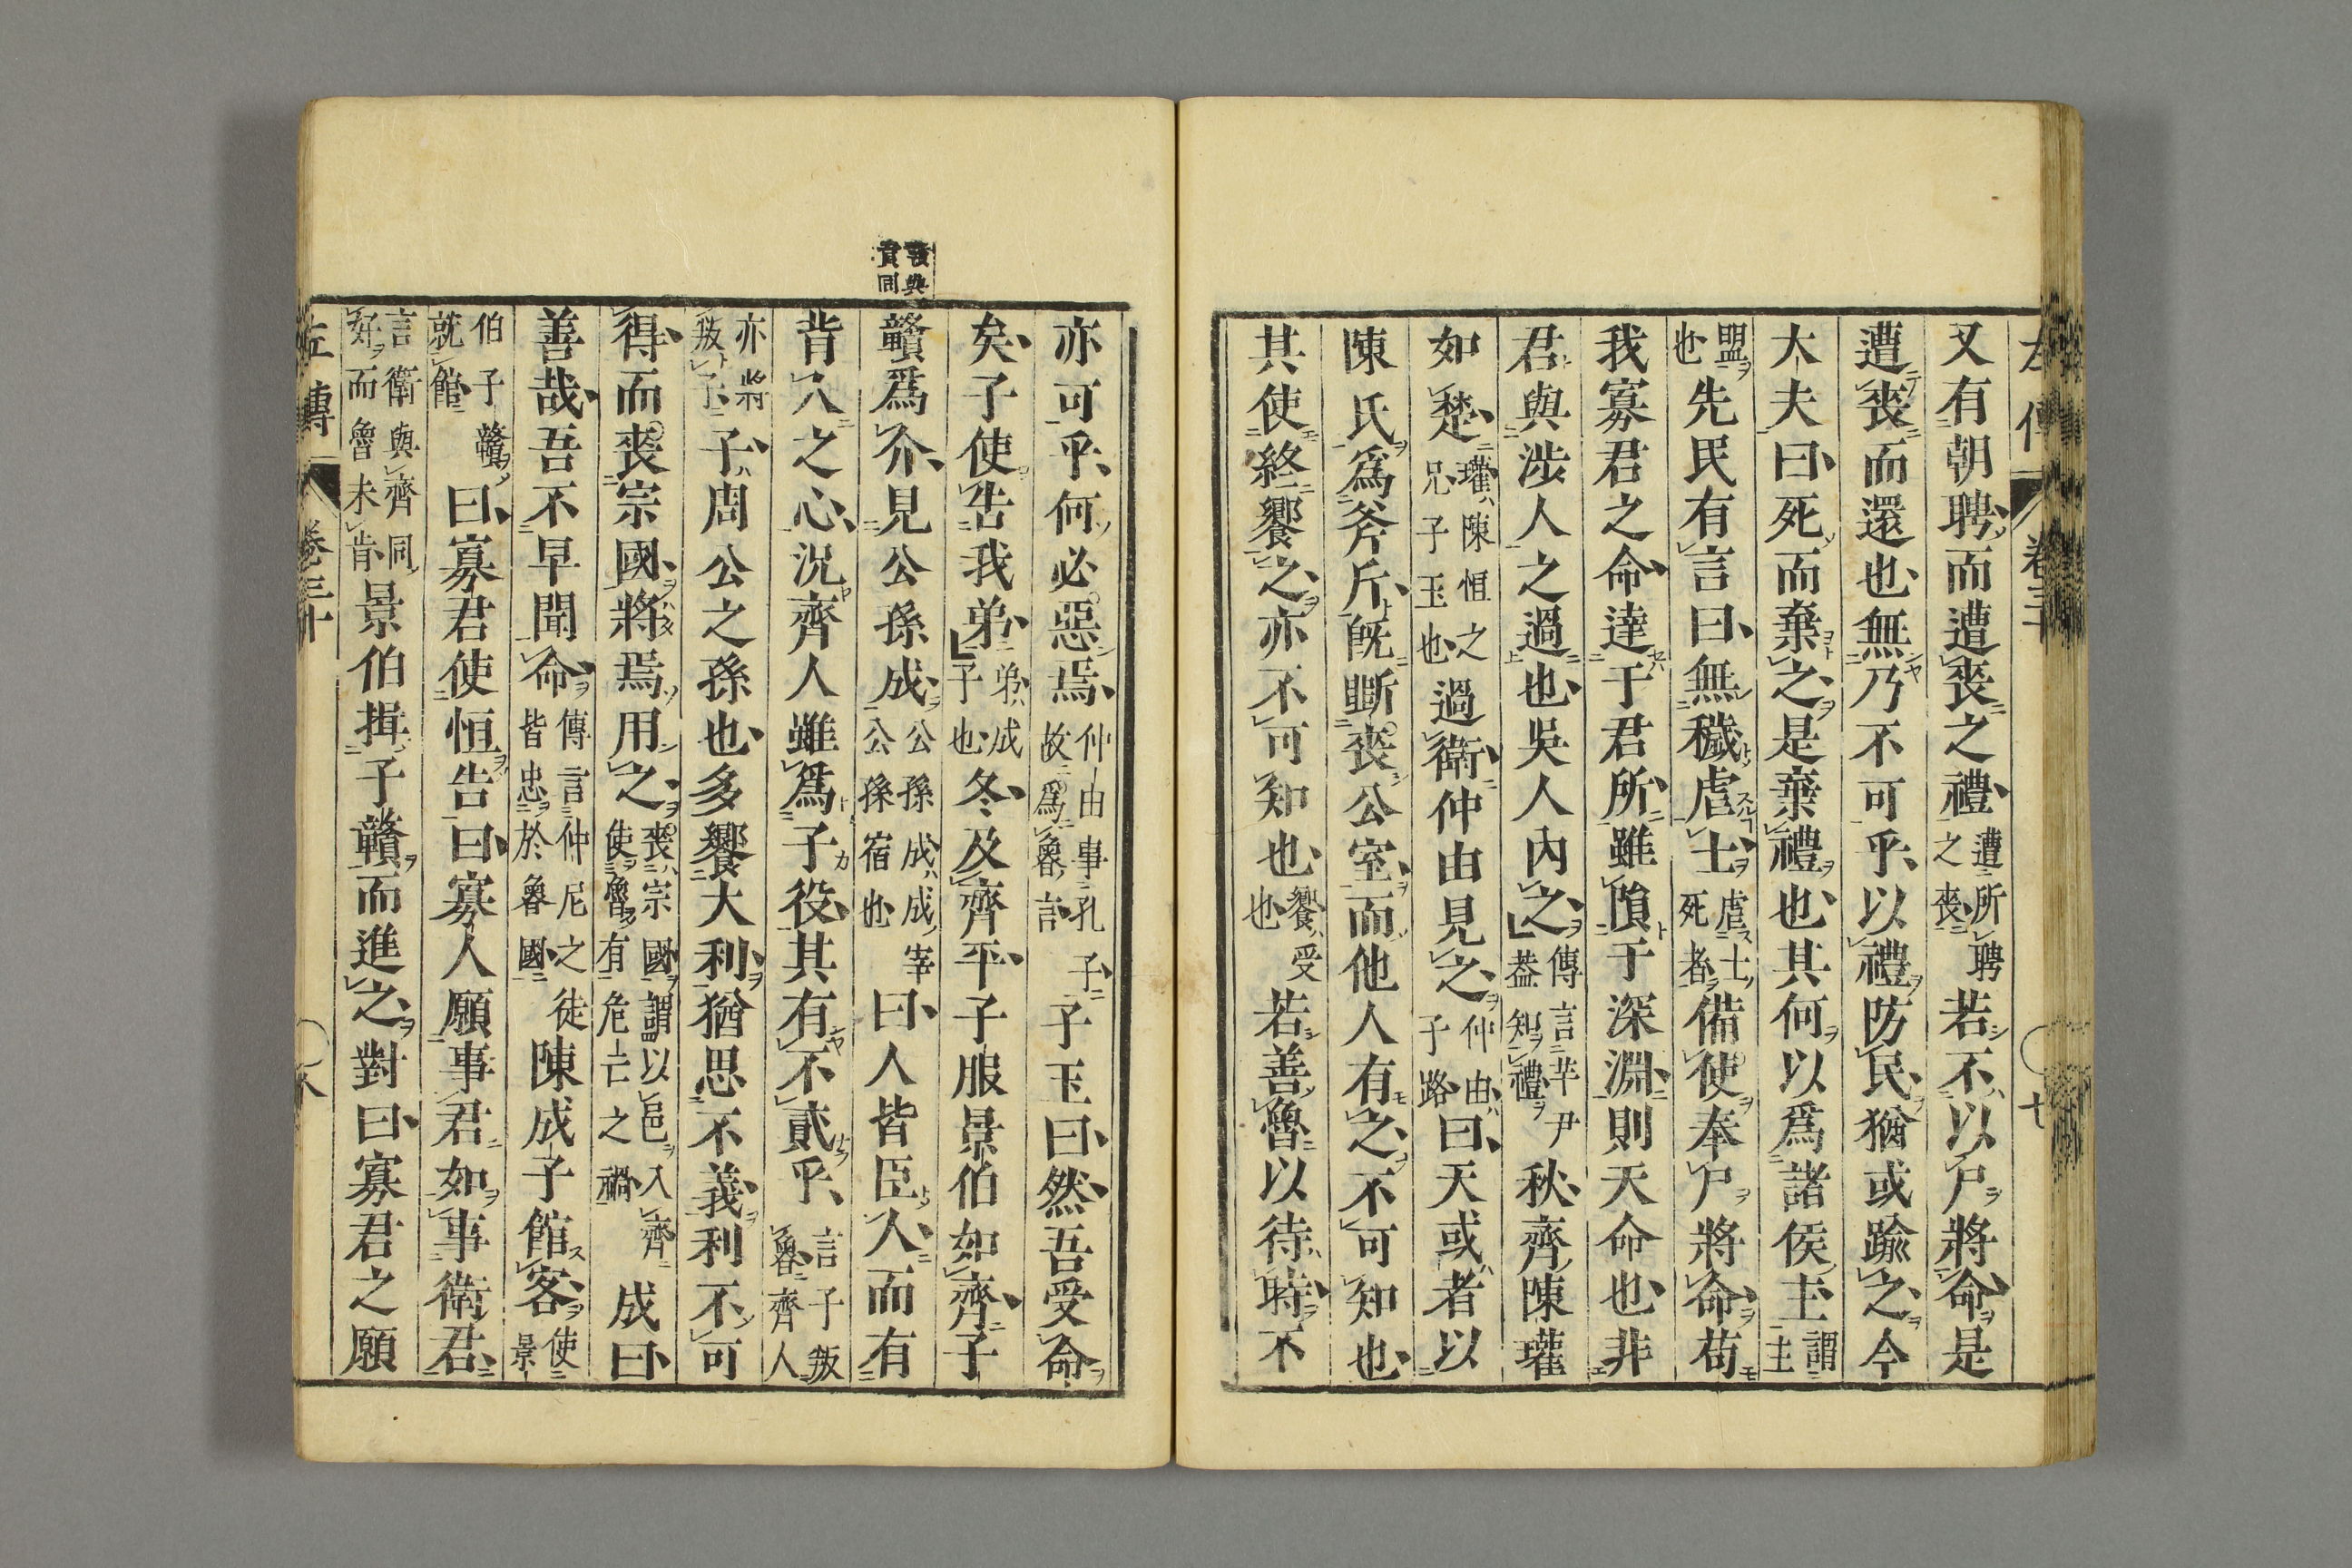 又有朝聘而遭喪之禮遭所聘之喪若不以尸將命是
遭喪而還也無乃不可乎以禮防民猶或踰之今
大夫曰死而棄之是棄禮也其何以爲諸侯主謂主
盟也先民有言曰無穢虐士虐士死者備使奉尸將命苟
我寡君之命達于君所雖隕于深淵則天命也非
君與涉人之過也吳人內之傳言芋尹蓋知禮秋齊陳瓘
如楚瓘陳恒之兄子玉也過衛仲由見之仲由子路曰天或者以
陳氏爲斧斤旣斲喪公室而他人有之不可知也
其使終饗之亦不可知也饗受也若善魯以待時不
左傳 卷三十 七
亦可乎何必惡焉仲由事孔子故爲魯言子玉曰然吾受命
矣子使告我弟弟成子也冬及齊平子服景伯如齊子
贛爲介見公孫成公孫成成宰公孫宿也曰人皆臣人而有
背人之心況齊人雖爲子役其有不貳乎言子叛魯齊人
亦將叛子子周公之孫也多饗大利猶思不義利不可
得而喪宗國將焉用之喪宗國謂以邑入齊使魯有危亡之禍成曰
善哉吾不早聞命傳言仲尼之徒皆忠於魯國陳成子館客使景
伯子贛就館曰寡君使恒告曰寡人願事君如事衛君
言衛與齊同好而魯未肯景伯揖子贛而進之對曰寡君之願
左傳 卷三十 八